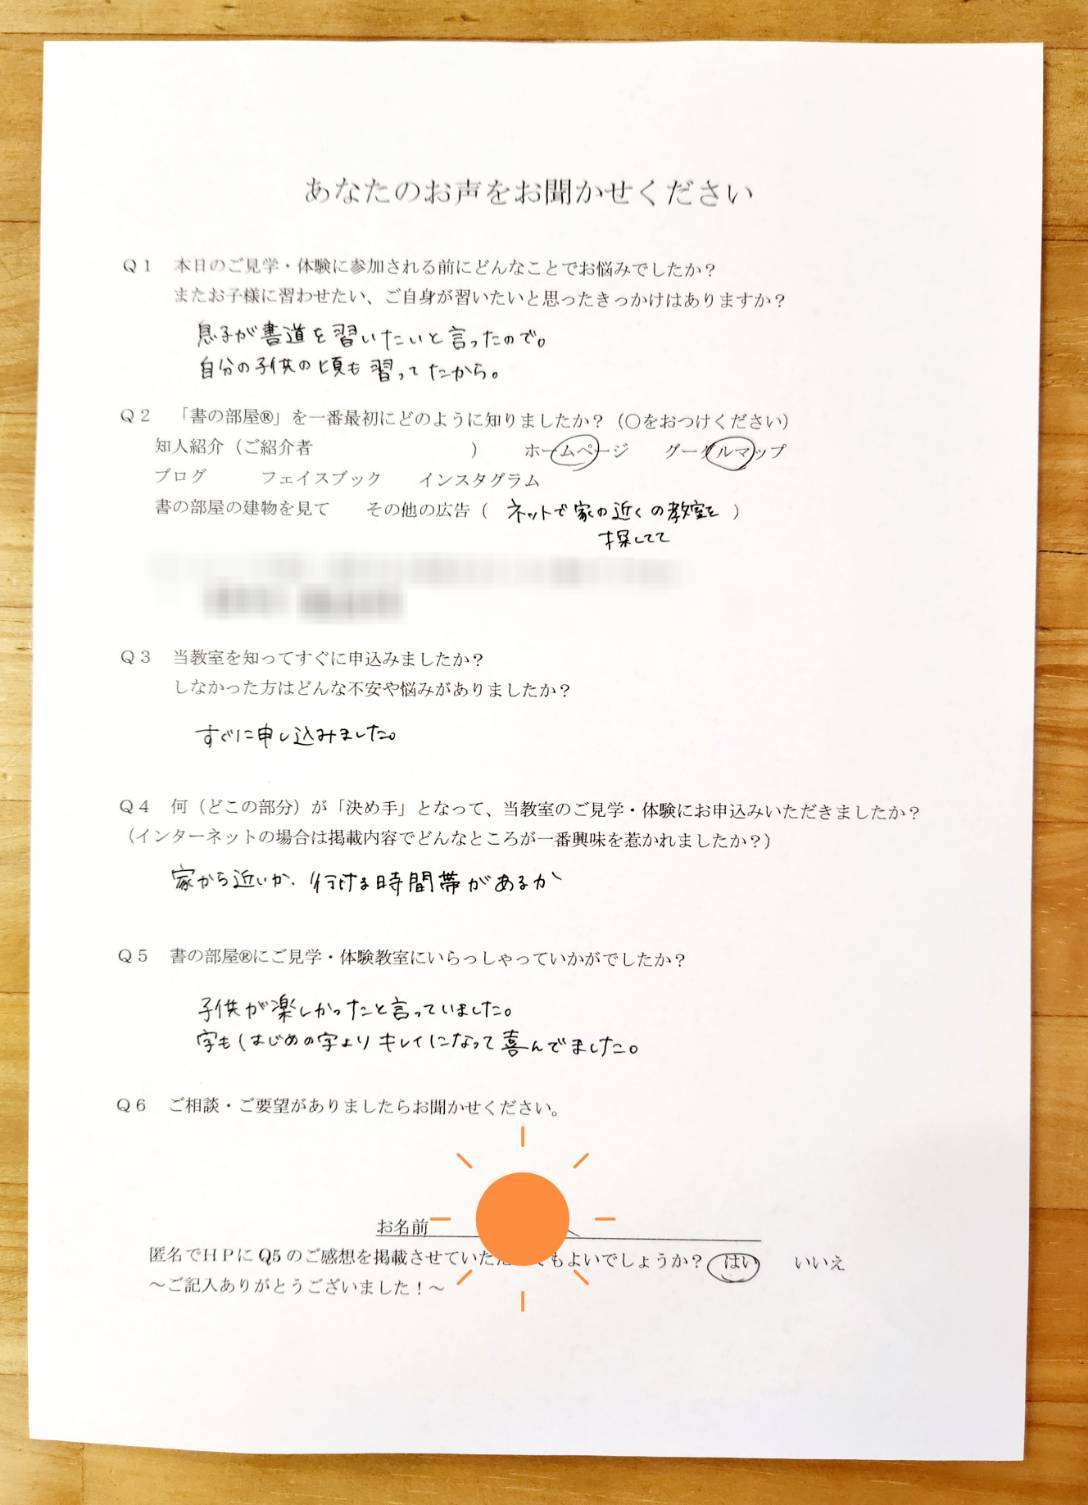 あなたのお声をお聞かせください
Q1 本日のご見学・体験に参加される前にどんなことでお悩みでしたか？
またお子様に習わせたい、ご自身が習いたいと思ったきっかけはありますか？
息子が書道を習いたいと言ったので。
自分の子供の頃も習ってたから。
Q2 「書の部屋®」を一番最初にどのように知りましたか？（〇をおつけください）
知人紹介（ご紹介者 ） ホームページ グーグルマップ
ブログ フェイスブック インスタグラム
書の部屋の建物を見て その他の広告（ ネットで家の近くの教室を ）
探してて
Q3 当教室を知ってすぐに申込みましたか？
しなかった方はどんな不安や悩みがありましたか？
すぐに申し込みました。
Q4 何（どこの部分）が「決め手」となって、当教室のご見学・体験にお申込みいただきましたか？
（インターネットの場合は掲載内容でどんなところが一番興味を惹かれましたか？）
家から近いか、行ける時間帯があるか
Q5 書の部屋®にご見学・体験教室にいらっしゃっていかがでしたか？
子供が楽しかったと言っていました。
字もはじめの字よりキレイになって喜んでました。
Q6 ご相談・ご要望がありましたらお聞かせください。
お名前
匿名でHPにQ5のご感想を掲載させていた もよいでしょうか？ はい いいえ
～ご記入ありがとうございました！～